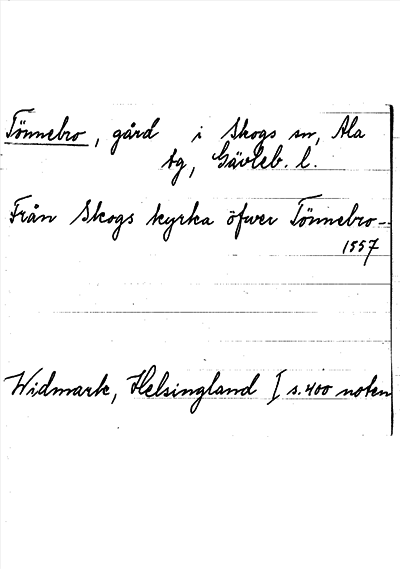 Tönnebro, gård i Skogs sn, Ala
tg, Gävleb. l.
Från Skogs kyrka öfwer Tönnebro-
1557
Widmark, Helsingland I s. 400 noten